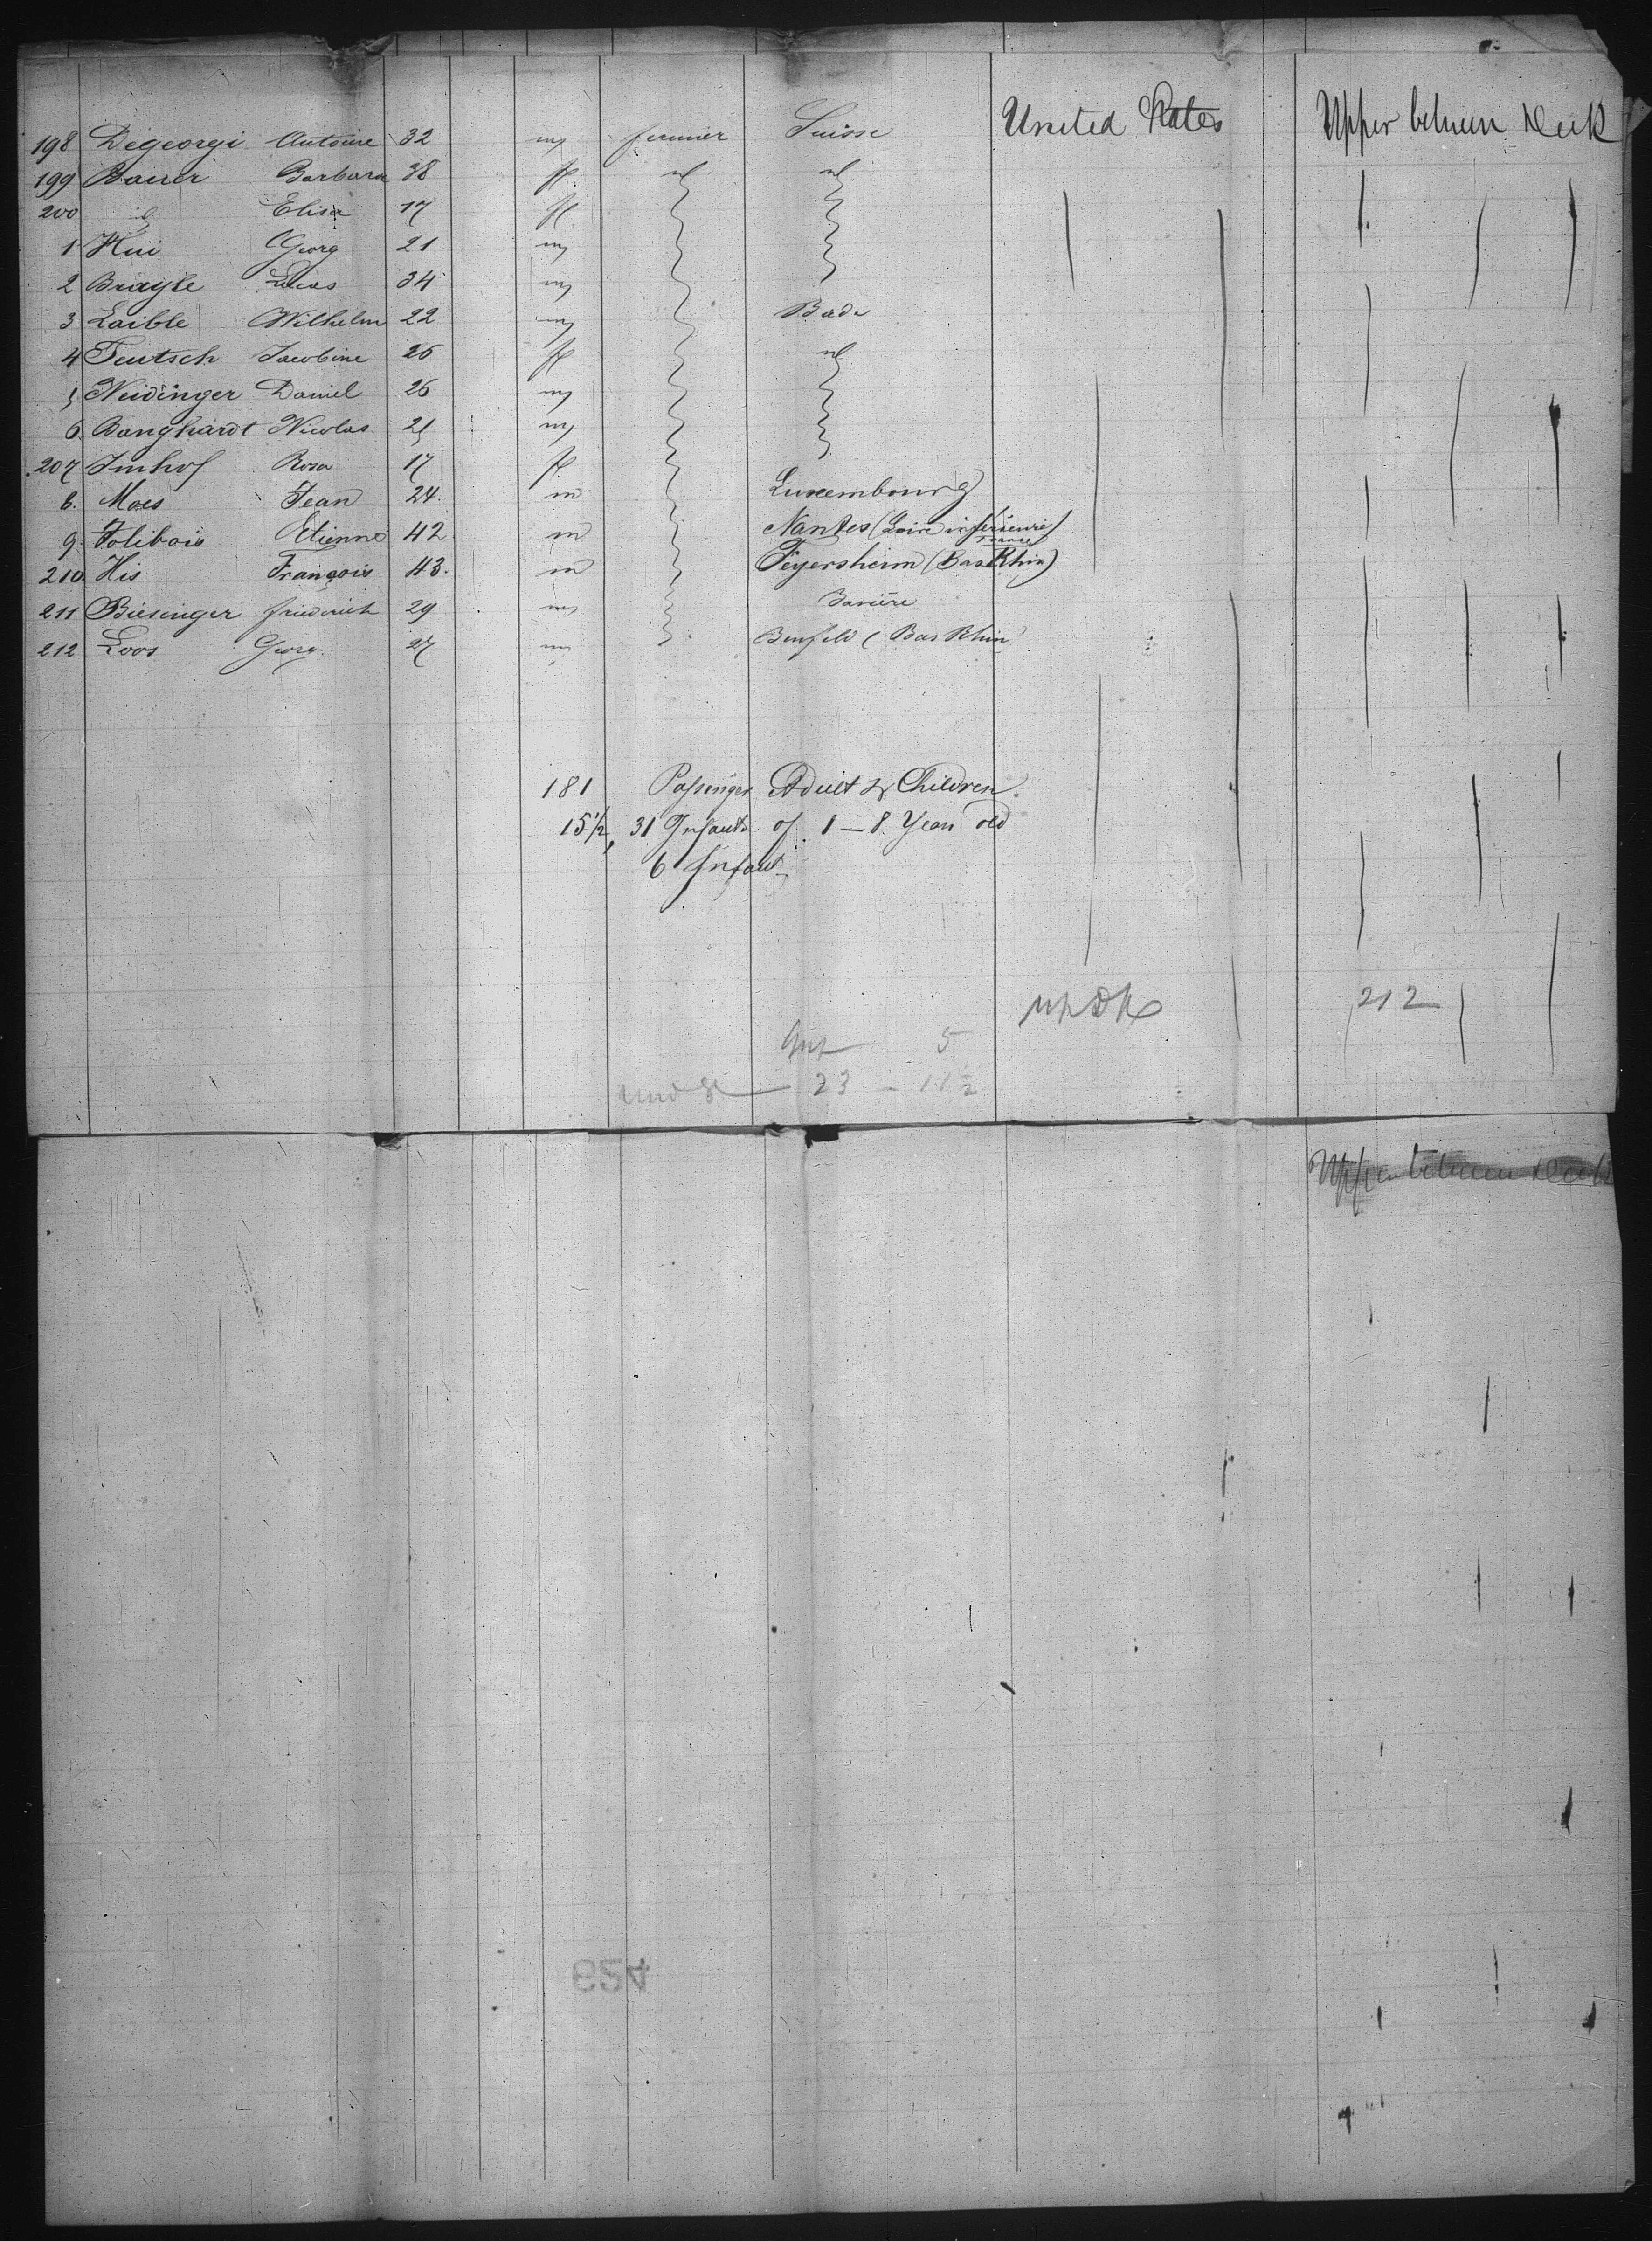 198 Degeorgi Antoine 32 m farmier Suisse United States Upper between Deck
199 Bauer Barbara 38 f id id
200 id Elisa 17 f
1 Hui Georg 21 m
2 Lucas 34 m
3 Laible Wilhelm 22 m Bade
4 Teutsch Jacobine 26 f id
5 Neidinger Daniel 26 m
6. Banghardt Nicolas 25 m
207 Imhof Rosa 17 f
8. Maes Jean 24. m Luxembourg
9. Folibois Etienne 42 m Nantes (Loire inférieure)
France
210 His François 43. m Feyersheim (Bas Rhin)
211 Biesinger friederich 29 m Bavière
212 Loos Georg. 27 m Benfeld (Bas Rhin
181 Passenger Adult & Children.
15 1/2, 31 Infants of 1 - 8 Years old
6 Infant
212
Inf 5
Und 8 23 - 11 1/2
Upper between Deck
624